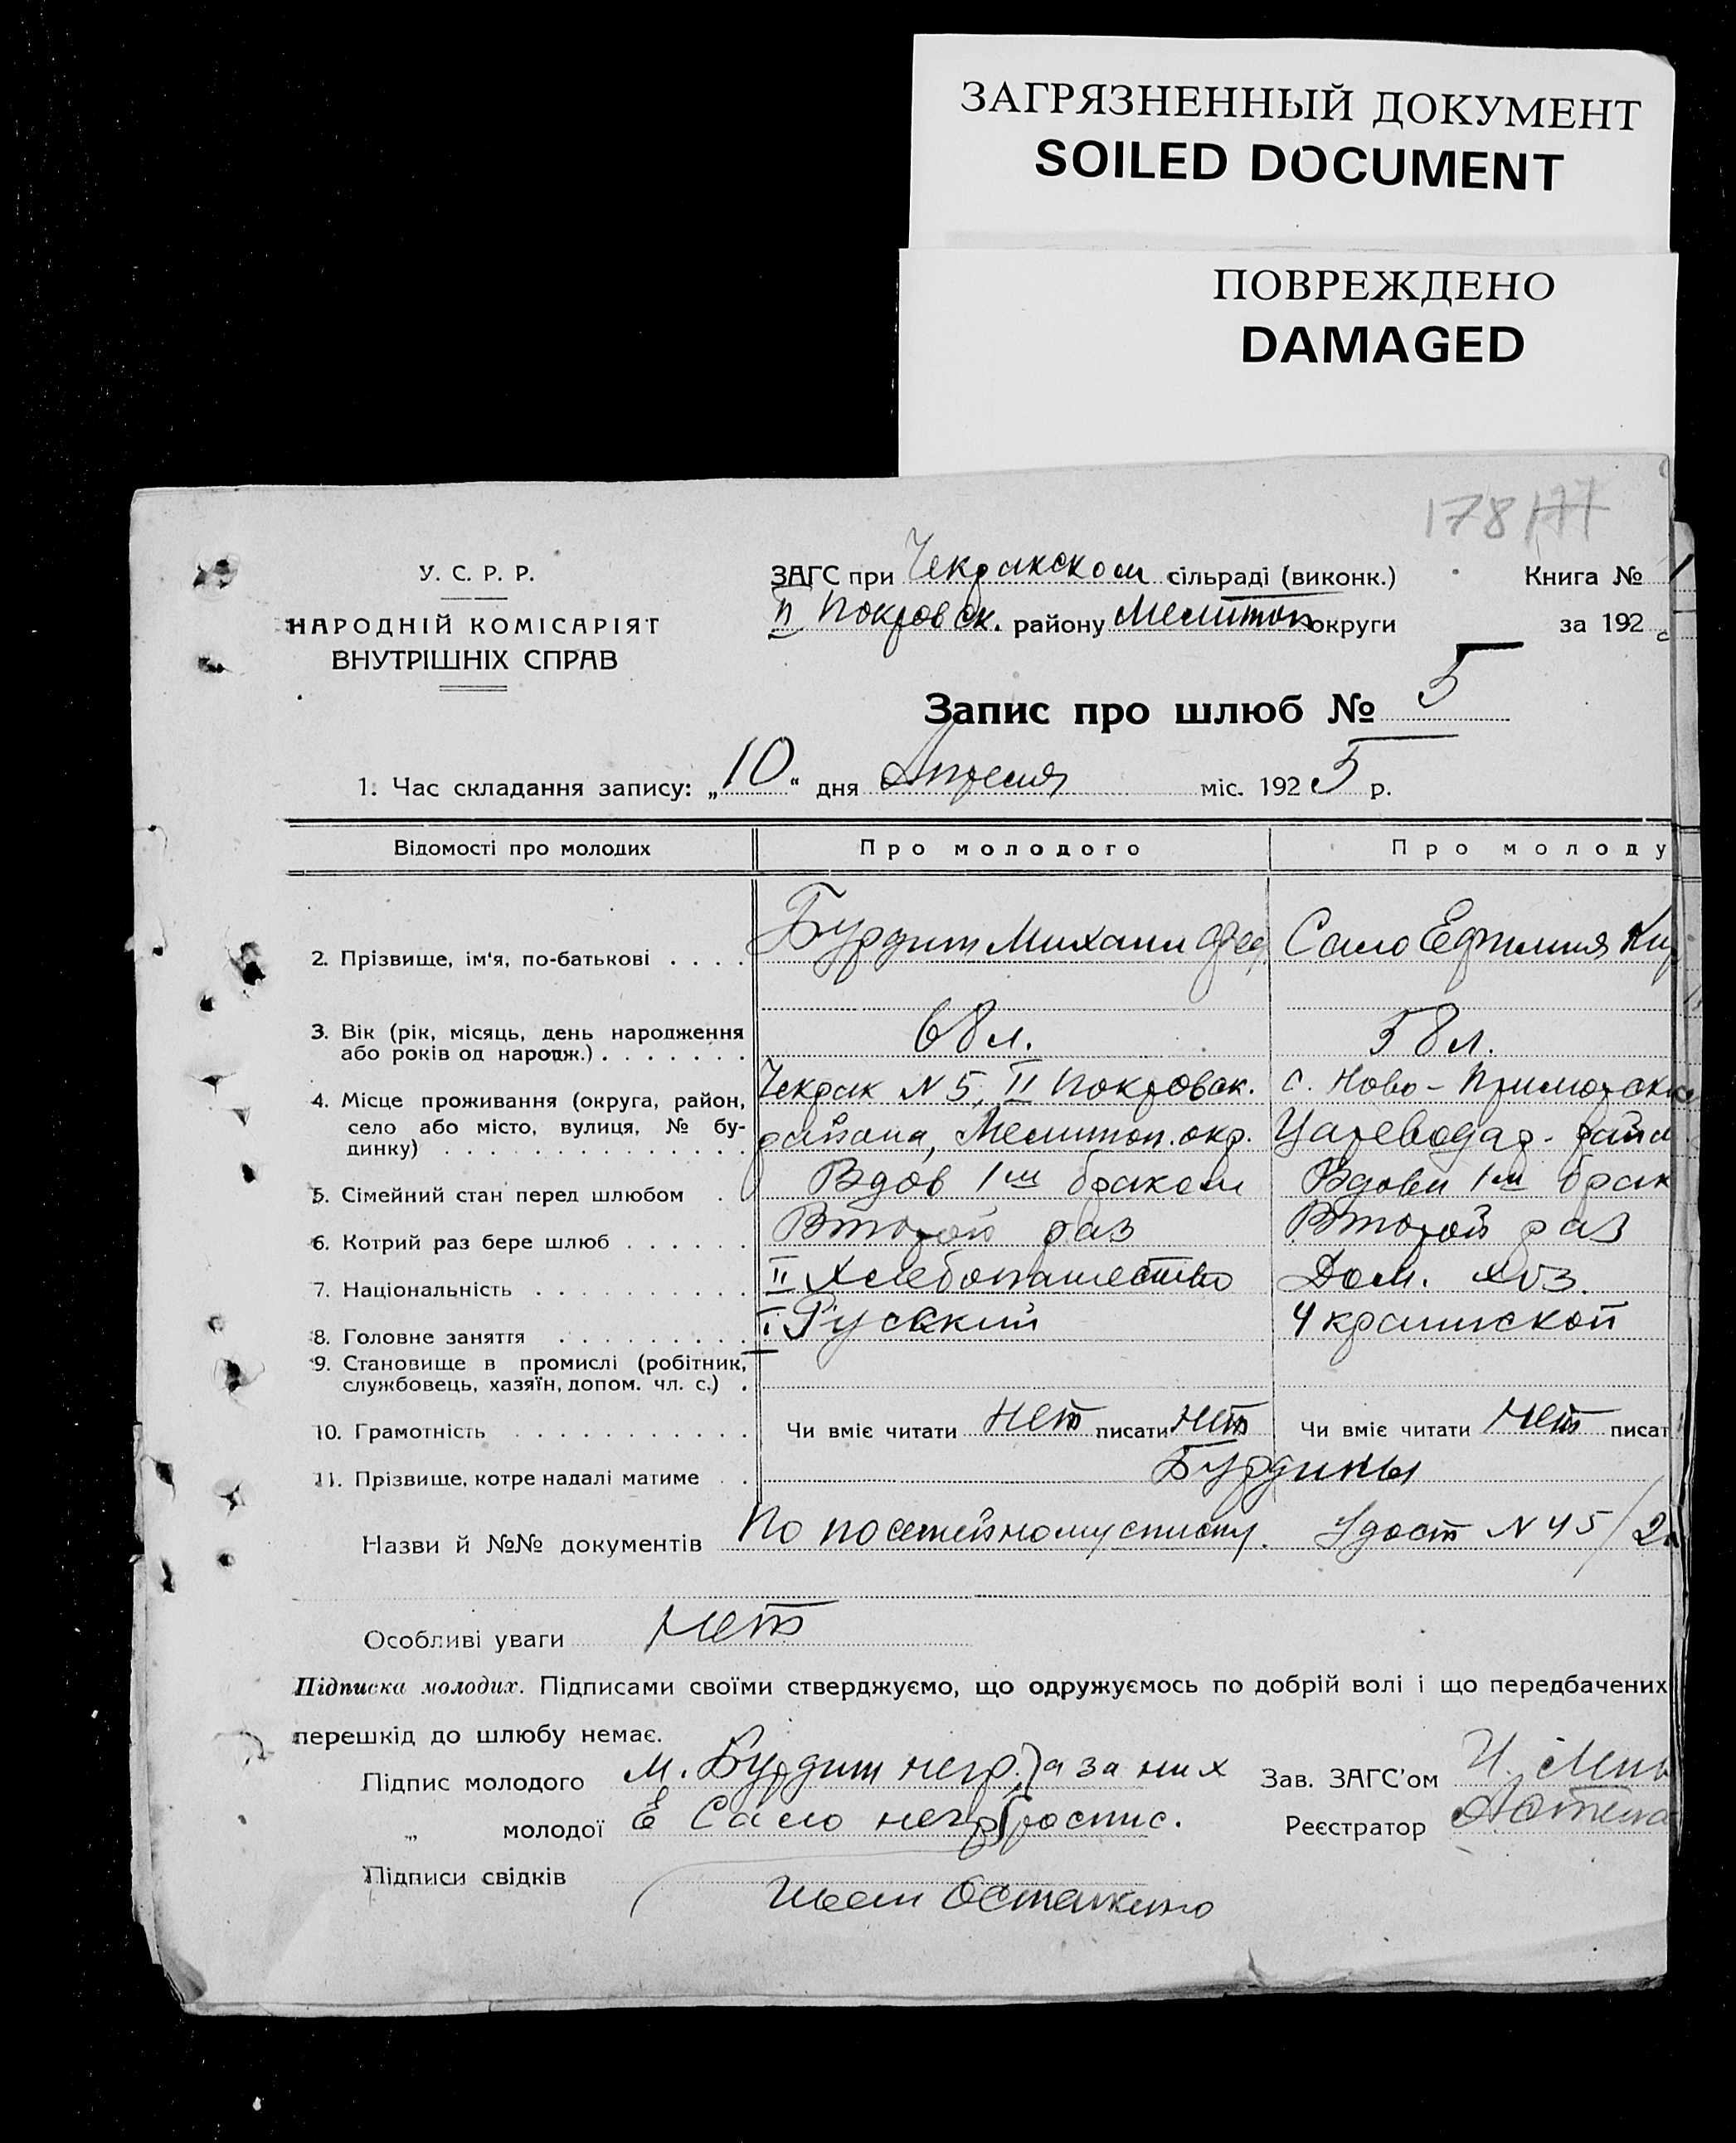 ЗАГРЯЗНЕННЫЙ ДОКУМЕНТ
SOILED DOCUMENT
ПОВРЕЖДЕНО
DAMAGED
178 177
У. С. Р. Р.
НАРОДНІЙ КОМІСАРІЯТ
ВНУТРІШНІХ СПРАВ
ЗАГС при Чекракском сільраді (виконк.) Книга № 1
II Покровск. району Мелитоп округи за 192
Запис про шлюб № 5
1. Час складання запису: „10" дня Апреля міс. 1925 р.
Відомості про молодих Про молодого Про молоду
2. Прізвище, ім'я, по-батькові . . . . Бурдин Михаил Фед Сало Ефимия Кир
3. Вік (рік, місяць, день народження
або років од народж.) . . . . . . . 68 л. 58 л.
4. Місце проживання (округа, район, Чекрак N 5, II Покровск. с. Ново-Приморск
село або місто, вулиця, № бу- района, Мелитоп. окр. Цареводар. район
динку) . . . . . . . . . . . . . .
5. Сімейний стан перед шлюбом . Вдов 1м браком Вдова 1м брак
6. Котрий раз бере шлюб . . . . . . Второй раз Второй раз
7. Національність . . . . . . . . . . II Хлебопашество Дом. хоз.
8. Головне заняття . . . . . . . . . I Руский Украинской
9. Становище в промислі (робітник,
службовець, хазяїн, допом. чл. с.) .
10. Грамотність . . . . . . . . . . . Чи вміє читати нет писати нет Чи вміє читати нет писат
11. Прізвище, котре надалі матиме . . Бурдины
Назви й №№ документів По посемейному списку. Удост N 45/2
Особливі уваги нет
Підписка молодих. Підписами своїми стверджуємо, що одружуємось по добрій волі і що передбачених
перешкід до шлюбу немає.
Підпис молодого М. Бурдин негр. а за них Зав. ЗАГС'ом И.
„ молодої Е Сало негр роспис. Реєстратор
Підписи свідків
Иван